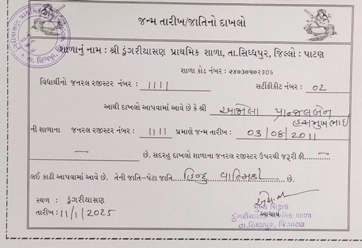 જન્મ તારીખ/જાતિનો દાખલો
શાળાનું નામ : શ્રી ડુંગરીયાસણ પ્રાથમિક શાળા, તા.સિધ્ધપુર, જિલ્લો : પાટણ
શાળા કોડ નંબર : ૨૪૦૩૦૪૦૨૩૦૬
વિદ્યાર્થીનો જનરલ રજીસ્ટર નંબર : 1111 સર્ટીફીકેટ નંબર : 02
આથી દાખલો આપવામાં આવે છે કે શ્રી
ની શાળાના જનરલ રજીસ્ટર નંબર : 1111 પ્રમાણે જન્મ તારીખ : 03/06/2011
છે. સદરહુ દાખલો શાળાના જનરલ રજીસ્ટર ઉપરથી જરૂરી
લઇ કાઢી આપવામાં આવે છે. તેની જાતિ-પેટા જાતિ હિન્દુ વાલ્મિકી છે.
સ્થળ : ડુંગરીયાસણ
તારીખ : 11/1/2025
આચાર્ય
ડુંગરીયાસણ પ્રાથમિક શાળા
તા.સિધ્ધપુર, જિ.પાટણ